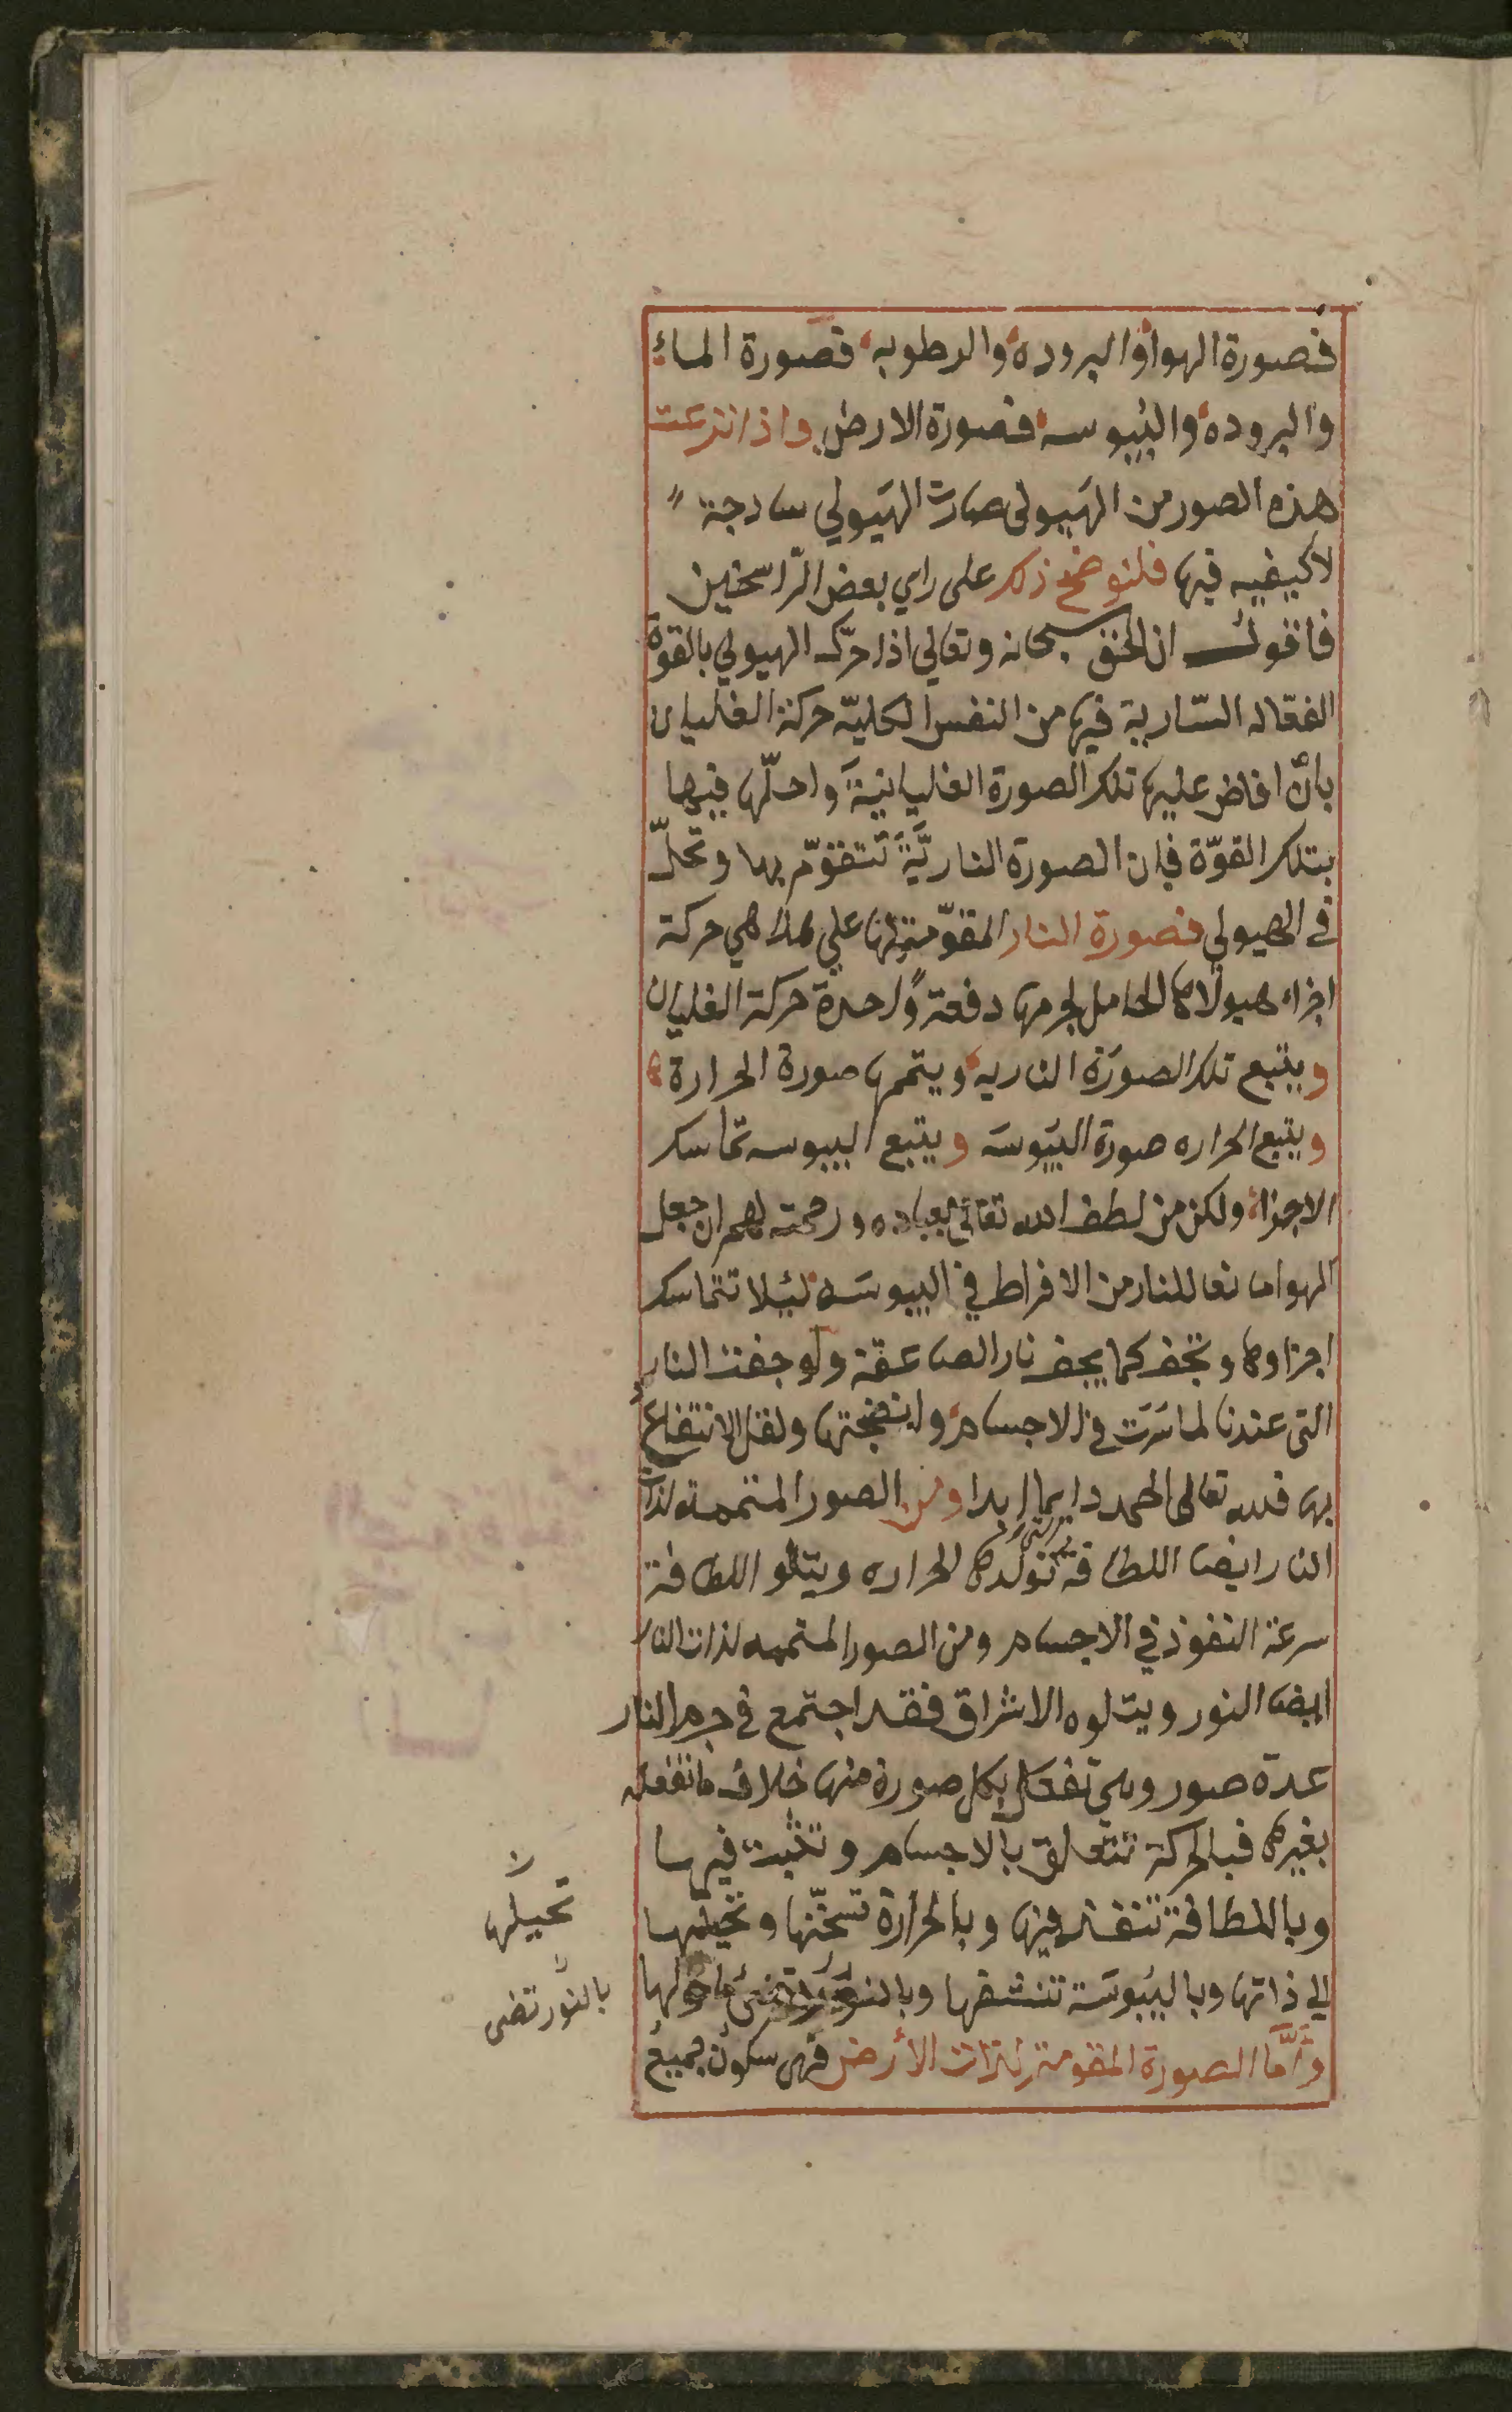 فصورة الهواء والبروده والرطوبه فصورة الماء
والبروده واليبوسه فصورة الارض واذا نزعت
هذه الصور من الهيولى صارت الهيولي ساذجة
لا كيفيه فيها فلنوضح ذلك على راي بعض الرّاسخين
فاقول ان الحق سبحانه وتعالي اذا حرّك الهيولي بالقوة
الفعّاله السّارية فيها من النفس الكليّه حركة الغليان
بانْ افاض عليها تلك الصورة الغليانيةَ واحلّها فيها
بتلك القوّة فان الصورة الناريّةَ تتقوّم بها وتحلّ
في الهيولي فصورة النار المقوّمة لها علي هذا هي حركة
اجزاء هيولاها الحامل لجرمها دفعةً واحدة حركة الغليان
ويتبع تلك الصورَة الناريه ويتممها صورة الحرارة
ويتبع الحراره صورة اليَبوسَه ويتبع اليبوسه تماسك
الاجزاء ولكن من لطف الله تعالي بعباده ورحمته لهم ان جعل
الهوا مانعا للنار من الافراط في اليبوسَه لئلا تتماسك
اجزاوها وتجف كما يجف نار الصاعقة ولو جفت النار
التى عندنا لما سَرَت في الاجسام ولا نضجتها ولقل الانتفاع
بها فلله تعالى الحمد دايما ابدا ومن الصور المتممة لذات
النار ايضا اللطافة تولدها الحراره ويتلو اللطافة
سرعة النفوذ في الاجسام ومن الصور المتممه لذات النار
ايضا النور ويتلوه الاشراق فقد اجتمع في جرم النار
عدة صور وهى تفعل بكل صورة منها خلاف ما تفعله
بغيرها فبالحركة تتعلق بالاجسام وتثبت فيها
وباللطافة تنفذ فيها وبالحرارة تسخّنها وتحيلها
الي ذاتها وباليبُوسَة تنشفها وبالنور تضئ ما حولها
وَأمَّا الصورة المقومة لذات الأرض فهى سكون جميع
تحيلها
بالنّور تضى